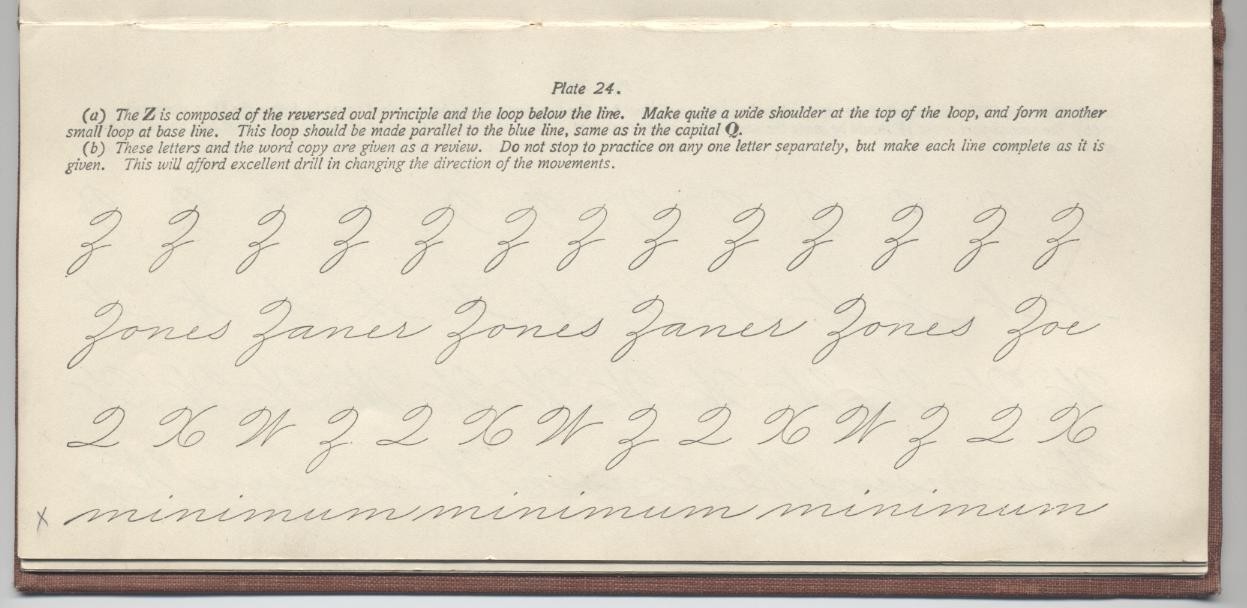 Plate 24.
(a) The Z is composed of the reversed oval principle and the loop below the line. Make quite a wide shoulder at the top of the loop, and form another
small loop at base line. This loop should be made parallel to the blue line, same as in the capital Q.
(b) These letters and the word copy are given as a review. Do not stop to practice on any one letter separately, but make each line complete as it is
given. This will afford excellent drill in changing the direction of the movements.
Z Z Z Z Z Z Z Z Z Z Z Z Z
Zones Zaner Zones Zaner Zones Zoe
Q X W Z Q X W Z Q X W Z Q X
x minimum minimum minimum